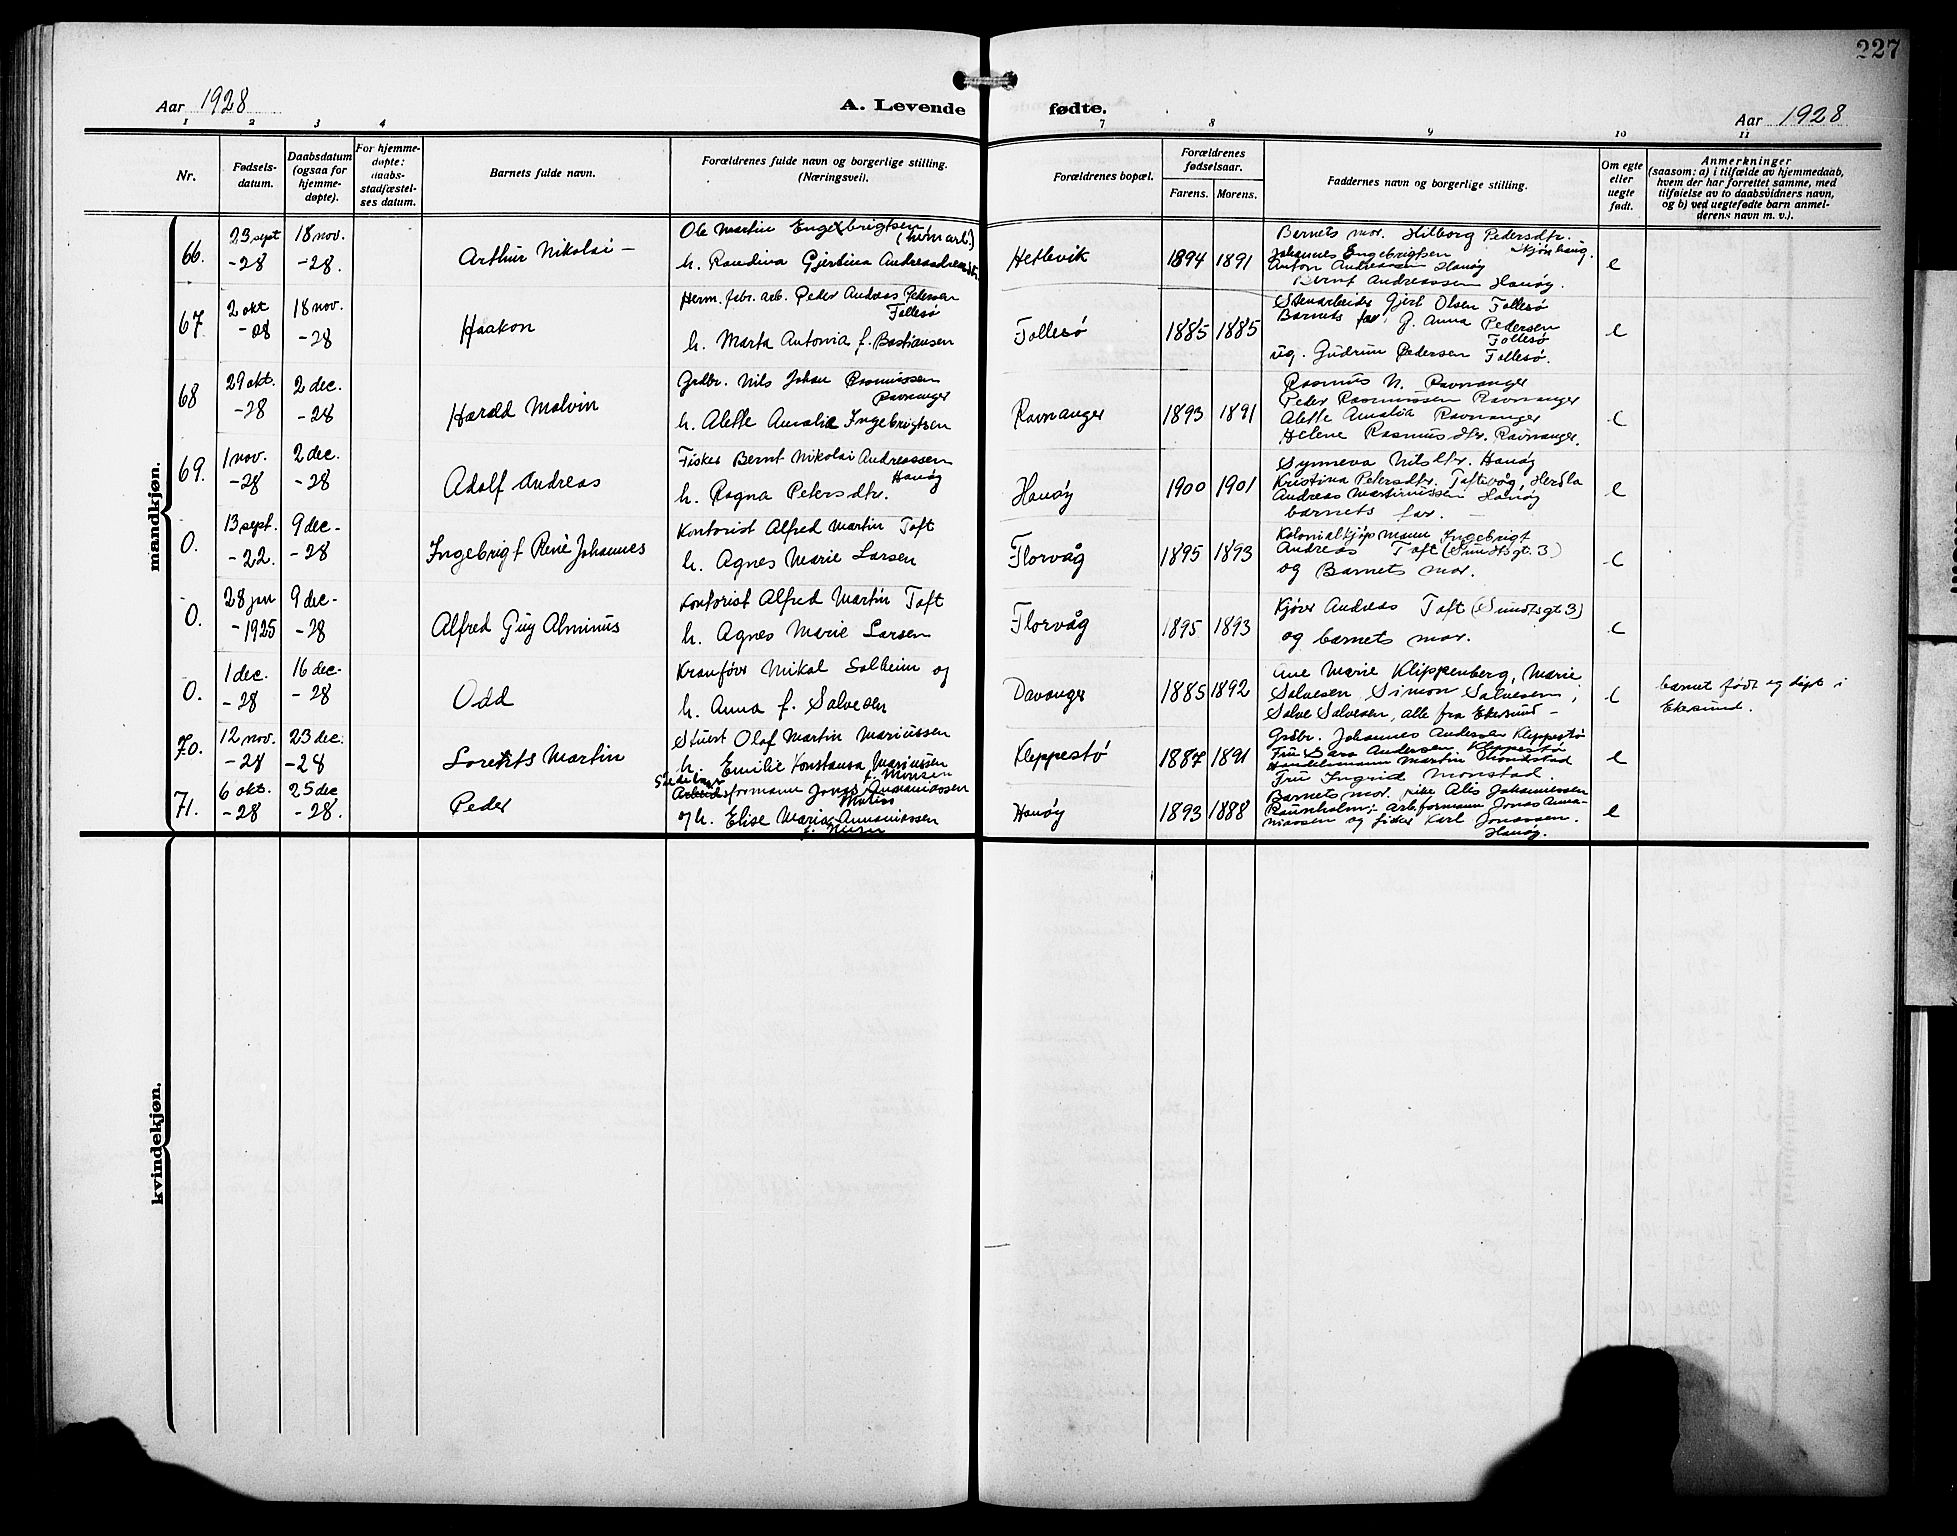 227
Aar 1928
A. Levende fødte.
Aar 1928
1 2 3 4 7 8 9 10 11
Nr.
Fødsels-
datum.
Daabsdatum
(ogsaa for
hjemme-
døpte).
For hjemme-
døpte:
daabs-
stadfæstel-
ses datum.
Barnets fulde navn.
Forældrenes fulde navn og borgerlige stilling.
(Næringsvei).
Forældrenes bopæl.
Forældrenes
fødselsaar.
Farens. Morens.
Faddernes navn og borgerlige stilling.
Om egte
eller
uegte
født.
Anmerkninger
(saasom: a) i tilfælde av hjemmedaab,
hvem der har forrettet samme, med
tilføielse av to daabsvidners navn,
og b) ved uegtefødte barn anmel-
derens navn m. v.).
mandkjøn.
66.
23 sept
-28
18 nov.
-28.
Arthur Nikolai -
Ole Martin Engebrigtsen
h. Randina Gjertina
Hetlevik
1894 1891
Barnets mor. Hilborg Pedersdtr.
Johannes Engebrigtsen
Anton Andreassen Hanøy
Bernt Andreassen Hanøy.
e
67
2 okt
-28
18 nov.
-28
Haakon
Herm. fabr. arb. Peder Andreas Pedersen
Follesø
h. Marta Antonia f. Bastiansen
Follesø
1885 1885
Stenarbeider Gjert Olsen Follesø
Barnets far, J. Anna Pedersen
Follesø
ug. Gudrun Pedersen Follesø.
e
68
29 okt.
-28
2 dec.
-28
Harald Malvin
Grdbr. Nils Johan Rasmussen
Ravnanger
h. Alette Amalie Ingebrigtsen
Ravnanger
1893 1891
Rasmus N. Ravnanger
Peder Rasmussen Ravnanger
Alette Amalia Ravnanger
Helene Rasmusdtr. Ravnanger.
e
69.
1 nov.
-28
2 dec.
-28
Adolf Andreas
Fisker Bernt Nikolai Andreassen
Hanøy
h. Ragna Petersdtr.
Hanøy
1900 1901
Synneva Nilsdtr. Hanøy
Kristina Petersdtr. Toftevåg, Herdla
Andreas Martinussen Hanøy
barnets far.
e
0.
13 sept.
-22.
9 dec-
-28
Ingebrigt René Johannes
Kontorist Alfred Martin Toft
h. Agnes Marie Larsen
Florvåg
1895 1893
Kolonialkjøpmann Ingebrigt
Andreas Toft (Sundtsgt. 3)
og Barnets mor.
e
0.
28 jan
-1925
9 dec-
-28
Alfred Guy Alminus
Kontorist Alfred Martin Toft
h. Agnes Marie Larsen
Florvåg
1895 1893
Andreas Toft (Sundtsgt 3)
og barnets mor.
e
0.
1 dec.
-28
16 dec-
-28
Odd
Kranfører Mikal Solheim og
h. Anna f. Salvesen
Davanger
1885 1892
Ane Marie Klippenberg, Marie
Salvesen, Simon Salvesen,
Salve Salvesen, alle fra Ekersund -
e
barnet født og døpt i
Ekersund.
70.
12 nov.
-28
23 dec.
-28
Lorents Martin
Stuert Olaf Martin Mariussen
h. Emilie Konstansa Mariussen
f. Monsen
Kleppestø
1887 1891
Grdbr. Johannes Andersen Kleppestø
Fru Sara Andersen Kleppestø
Handelsmann Martin Monstad
Fru Ingrid Monstad.
e
71.
6 okt.
-28
25 dec
-28.
Peder
formann Jonas Ananiassen
og h. Elise Maria Ananiassen
Hanøy
1893 1888
Barnets mor. pike Alis Johannessen
arb. formann Jonas Anna-
niassen og fisker Karl Jonassen.
Hanøy.
e
kvindekjøn.